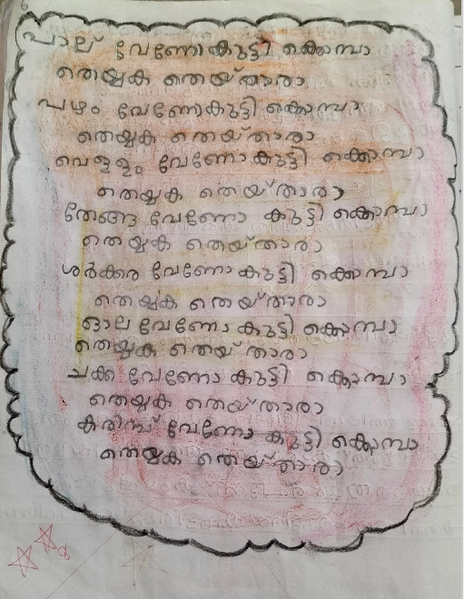 പാല് വേണോ കുട്ടി കൊമ്പാ
തെയ്യക തെയ് താരാ
പഴം വേണോ കുട്ടി കൊമ്പാ
തെയ്യക തെയ് താരാ
വെള്ളം വേണോ കുട്ടി കൊമ്പാ
തെയ്യക തെയ് താരാ
തേങ്ങ വേണോ കുട്ടി കൊമ്പാ
തെയ്യക തെയ് താരാ
ശർക്കര വേണോ കുട്ടി കൊമ്പാ
തെയ്യക തെയ് താരാ
ഓല വേണോ കുട്ടി കൊമ്പാ
തെയ്യക തെയ് താരാ
ചക്ക വേണോ കുട്ടി കൊമ്പാ
തെയ്യക തെയ് താരാ
കരിമ്പ് വേണോ കുട്ടി കൊമ്പാ
തെയ്യക തെയ് താരാ